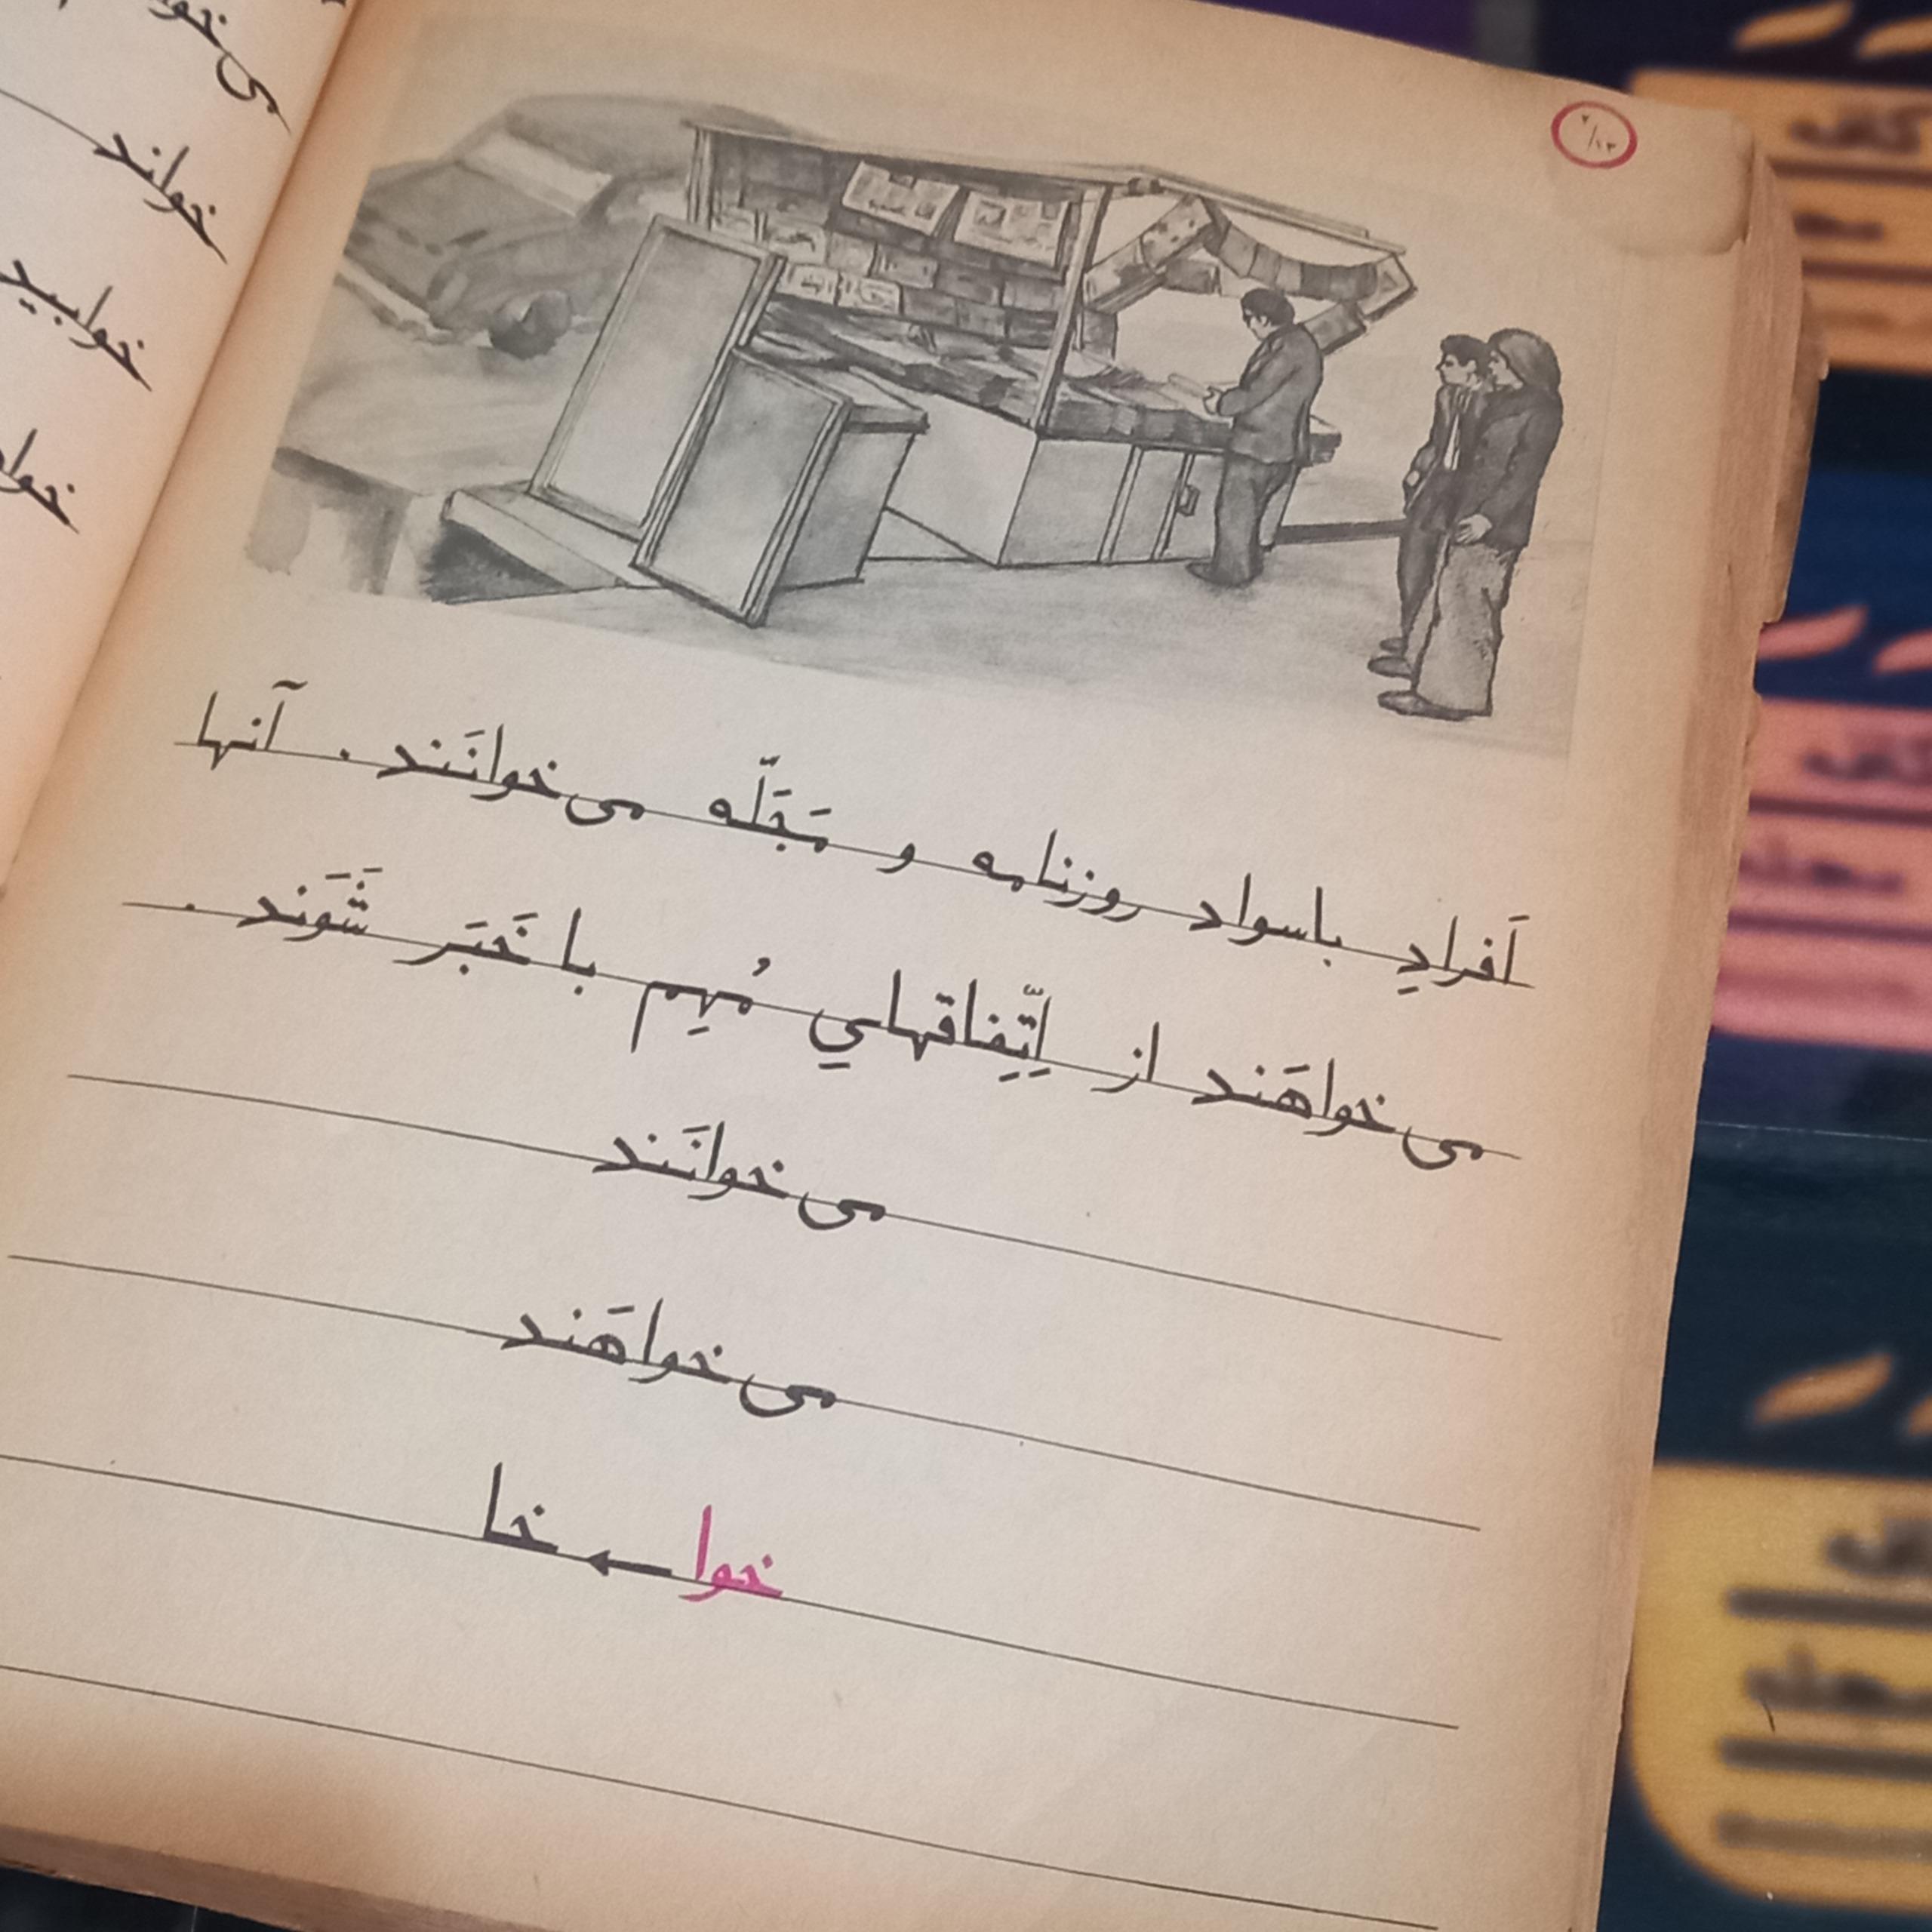 ۲/۱۲
اَفرادِ باسواد روزنامه و مَجَلّه می‌خوانَند . آنها
می‌خواهَند از اِتِّفاقهایِ مُهِم با خَبَر شَوَند .
می‌خوانَند
می‌خواهَند
خوا ← خا
خواند
خوابید